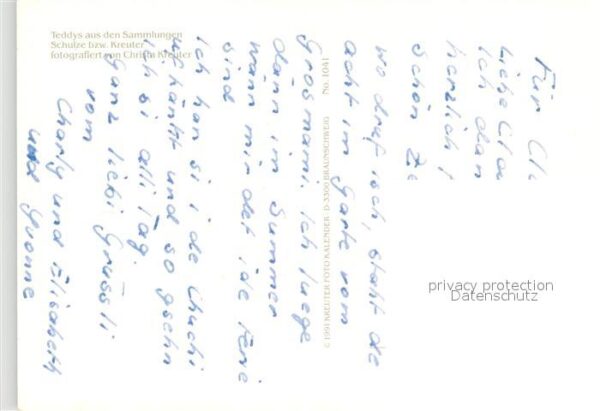 Teddys aus den Sammlungen
Schulze bzw. Kreuter
fotografiert von Christa Kreuter
© 1991 KREUTER FOTO KALENDER · D-3300 BRAUNSCHWEIG No. 1041
Für Cl
Liebe Clau
Ich dan
herzlich f
schön Ze
wo druf isch, staht de
acht im Garte vom
Grosmami. Ich luege
dänn im Summer
wänn mir det i de Ferie
sind
Ich han si i de Chuchi
ufghänkt und so gsehn
ich si all Tag.
Ganz liebi Grüessli
vom
Charly und Elisabeth
und Yvonne
privacy protection
Datenschutz